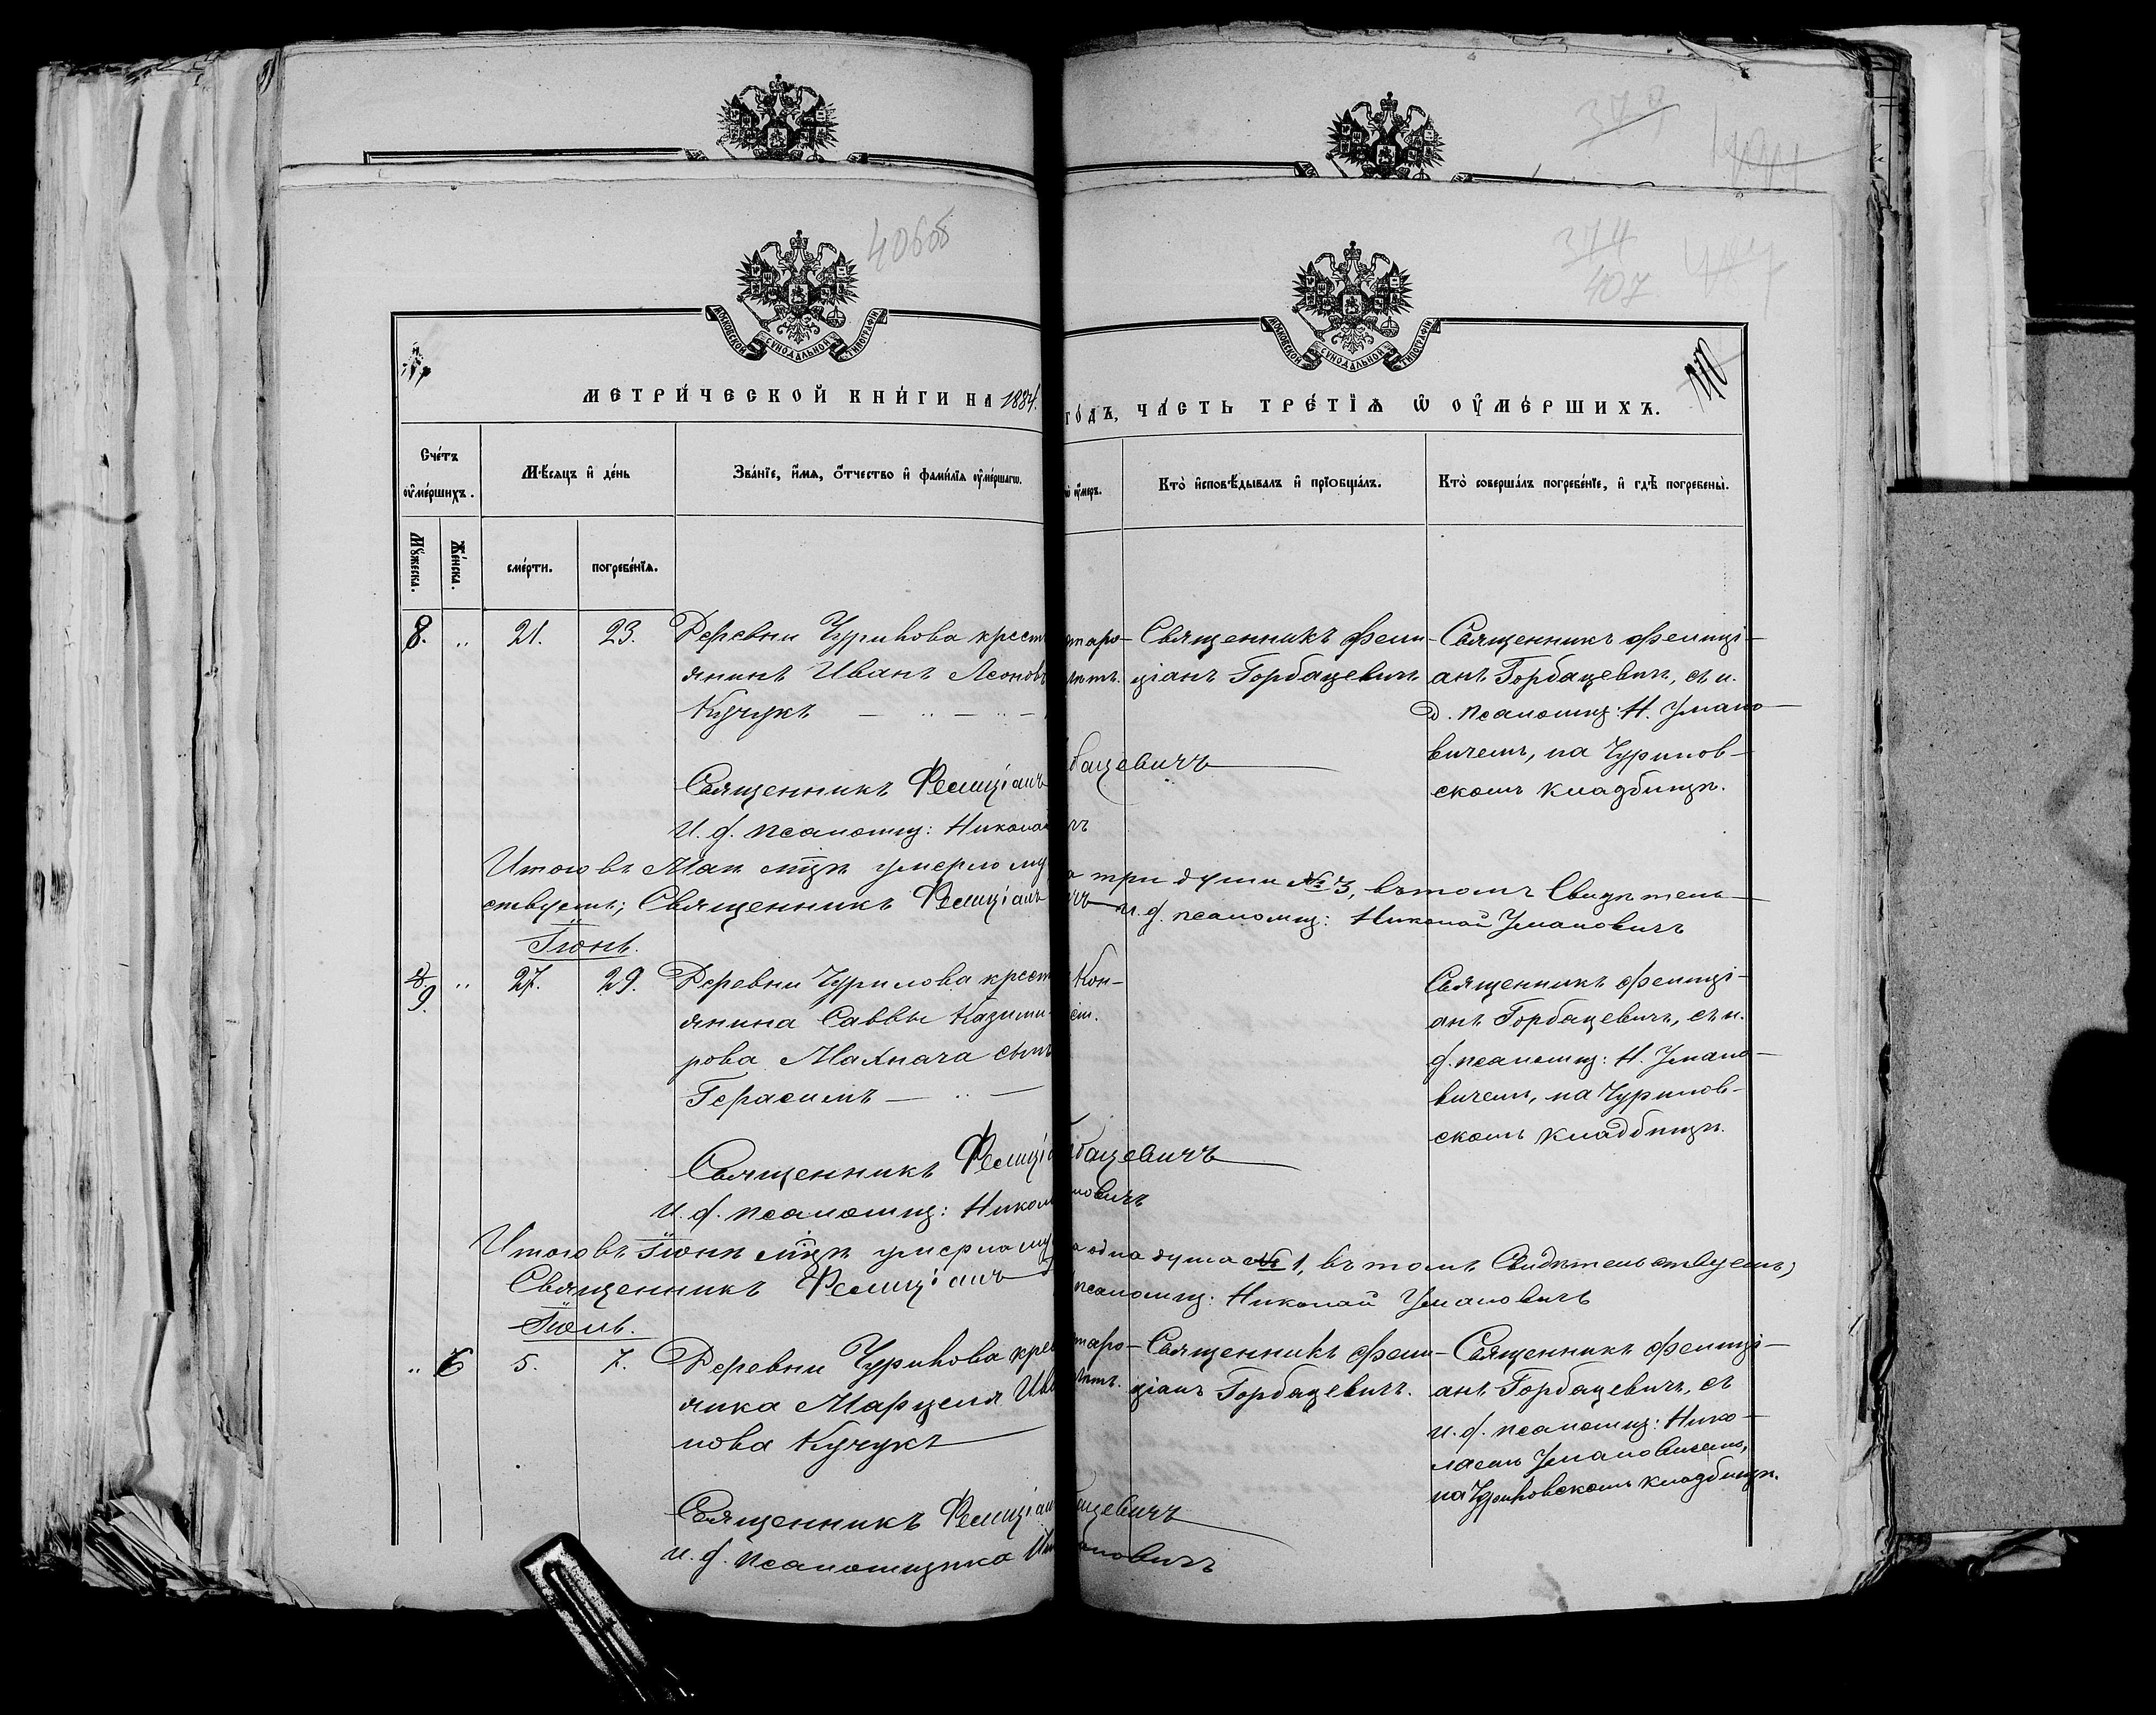 40605
374
407
МОСКОВСКОЙ СѴНОДАЛЬНОЙ ТИПОГРАФІИ
МОСКОВСКОЙ СѴНОДАЛЬНОЙ ТИПОГРАФІИ
МЕТРИ́ЧЕСКОЙ КНИ́ГИ НА 1884.
ГО́ДЪ, ЧА́СТЬ ТРЕ́ТІѦ Ѡ ОУМЕ́РШИХЪ.
Сче́тъ оуме́ршихъ.
Мꙋ́жеска.
Же́нска.
Мѣ́сяцъ и де́нь
сме́рти.
погребе́нїѧ.
Зва́нїе, и́мѧ, ѻ́тчество и фами́лїѧ оуме́ршагѡ.
оу́меръ.
Кто̀ исповѣ́дывалъ и прїѡбща́лъ.
Кто̀ соверша́лъ погребе́нїе, и гдѣ̀ погребены̀.
8. „ 21. 23. Деревни Чурилова крест
янинъ Иванъ Леоновъ
Кучукъ — „ — „ —
таро-
Священникъ Фели-
ціанъ Горбацевичъ
Священникъ Фелиці-
анъ Горбацевичъ, съ и.
д. псаломщ: Н. Умано-
вичемъ, на Чурилов-
скомъ кладбищѣ.
Священникъ Фелиціанъ
бацевичъ
И. д. псаломщ: Никола
чъ
Итого въ Маѣ мцѣ умерло му
а три души № 3, въ томъ Свидѣтель-
ствуемъ; Священникъ Фелиціанъ
чъ И. д. псаломщ: Николай Умановичъ
Іюнь.
9. „ 27. 29. Деревни Чурилова крест
янина Саввы Казими-
рова Махнача сынъ
Герасимъ — „ —
Кон-
Священникъ Фелиці-
анъ Горбацевичъ, съ и.
д. псаломщ: Н. Умано-
вичемъ, на Чурилов-
скомъ кладбищѣ.
Священникъ Фелиціа
бацевичъ
И. д. псаломщ: Никол
новичъ
Итого въ Іюнѣ мцѣ умерла му
а одна душа № 1, въ томъ Свидѣтельствуемъ;
Священникъ Фелиціанъ
псаломщ: Николай Умановичъ
Іюль.
„ 6 5. 7. Деревни Чурилова крес
янка Марцеля Ива
нова Кучукъ
таро-
Священникъ Фели-
ціанъ Горбацевичъ.
Священникъ Фелиці-
анъ Горбацевичъ, съ
и. д. псаломщ: Нико-
лаемъ Умановичемъ,
на Чуриловскомъ кладбищѣ.
Священникъ Фелиціан
ацевичъ
И. д. псаломщика Ни
ановичъ